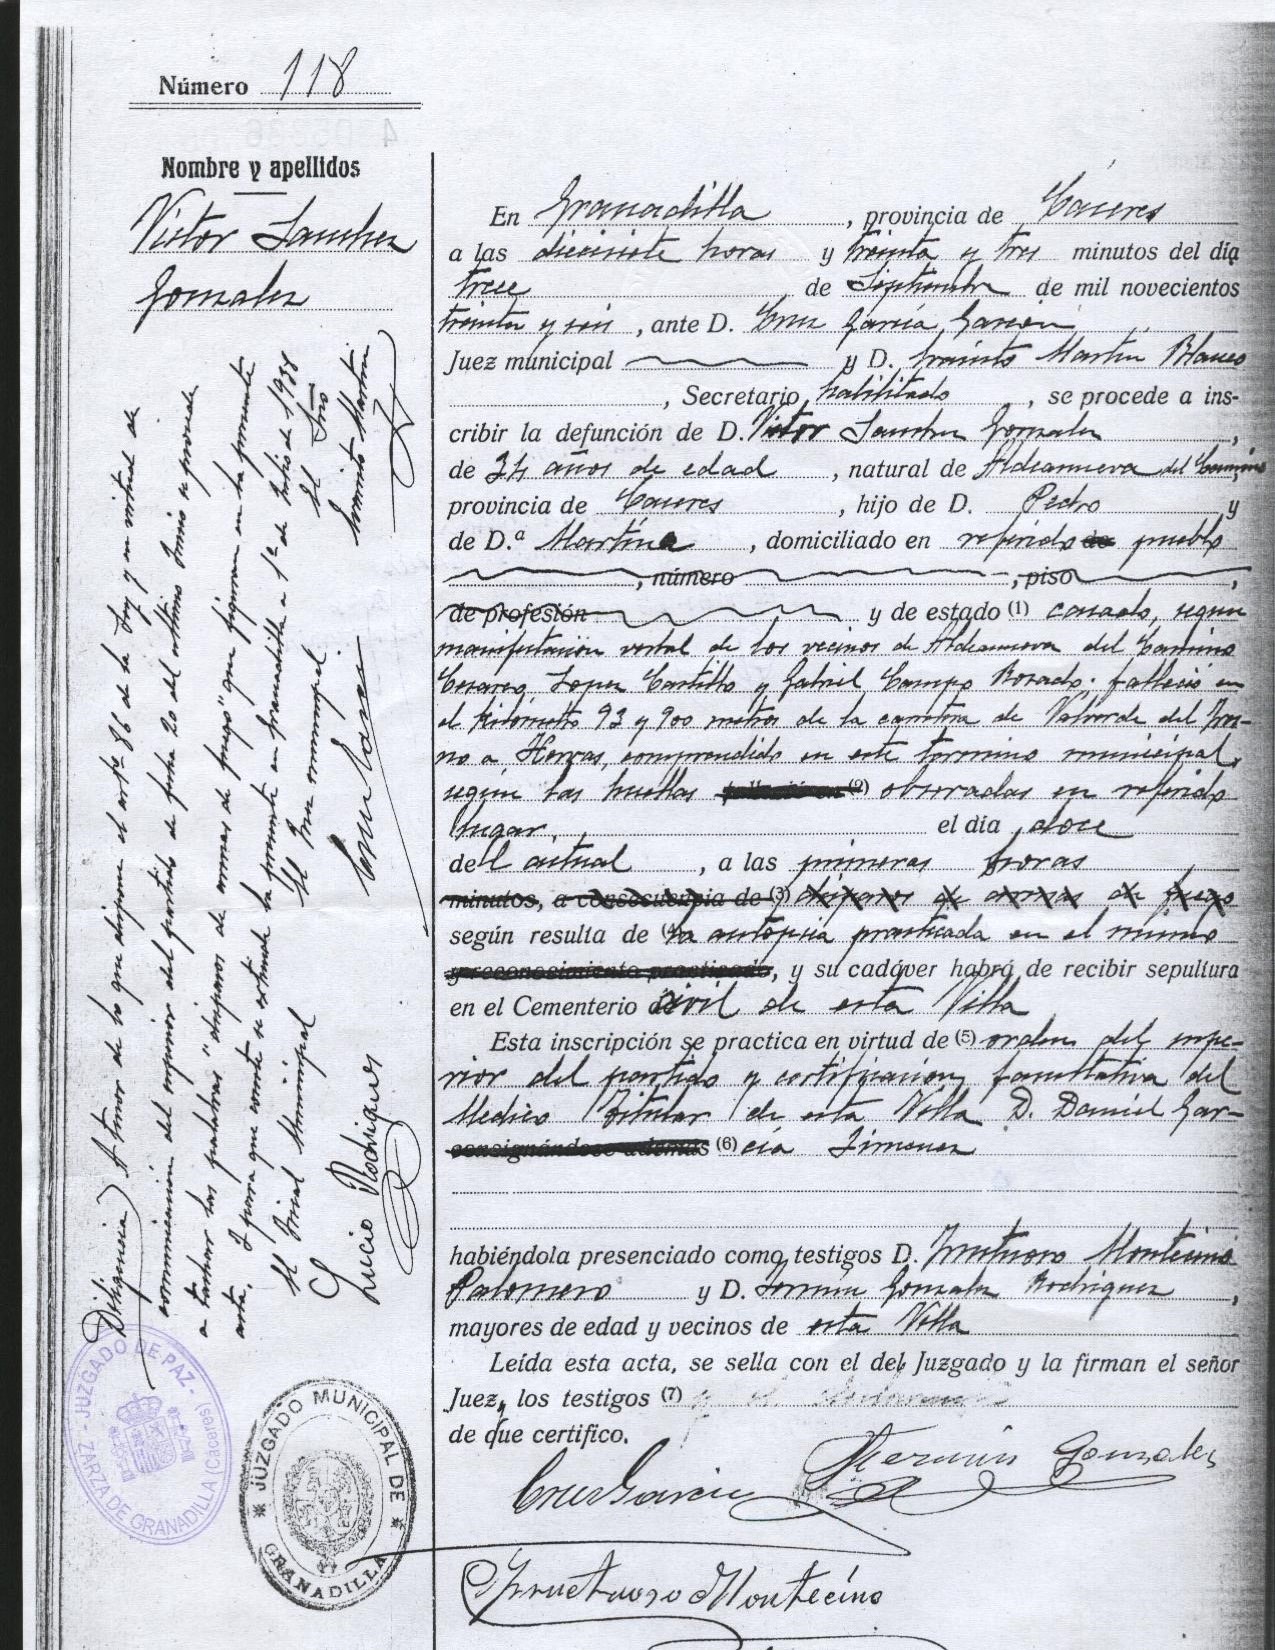 Número 118
Nombre y apellidos
Victor Sanchez
Gonzalez
En Granadilla, provincia de Cáceres
a las diecisiete horas y treinta y tres minutos del día
trece de Septiembre de mil novecientos
treinta y seis, ante D. Cruz García Garzón
Juez municipal y D. Martín Blanco
, Secretario habilitado, se procede a ins-
cribir la defunción de D. Victor Sanchez Gonzalez,
de 34 años de edad, natural de Aldeanueva del Camino,
provincia de Cáceres, hijo de D. Pedro y
de D.ª Martina, domiciliado en referido pueblo
, número , piso ,
de profesión y de estado (1) casado, segun
manifestación verbal de los vecinos de Aldeanueva del Camino
Cesareo Lopez Castillo y Gabriel Campo Rosado; falleció en
el kilómetro 93 y 900 metros de la carretera de Valverde del Fres-
no a Hervas, comprendido en este termino municipal,
segun las huellas (2) observadas en referido
lugar, el día doce
del actual, a las primeras horas
minutos, a consecuencia de (3) disparos de armas de fuego
según resulta de (4) la autopsia practicada en el mismo
y reconocimiento practicado, y su cadáver habrá de recibir sepultura
en el Cementerio civil de esta Villa
Esta inscripción se practica en virtud de (5) orden del supe-
rior del partido y certificación facultativa del
Medico Titular de esta Villa D. Daniel Gar-
consignándose además (6) cía Jimenez
habiéndola presenciado como testigos D. Fructuoso Montecino
Palomero y D. Fermín Gonzalez Rodriguez,
mayores de edad y vecinos de esta Villa
Leída esta acta, se sella con el del Juzgado y la firman el señor
Juez, los testigos (7)
de que certifico.
Cruz Garcia
Fermín Gonzalez
Fructuoso Montecino
Diligencia) A tenor de lo que dispone el artº 86 de la Ley y en virtud de
comunicación del superior del partido de fecha 20 del ultimo Junio se procede
a tachar las palabras "disparos de armas de fuego" que figuran en la presente
acta. Y para que conste se extiende la presente en Granadilla a 1º de Julio de 1938
El Fiscal Municipal
El Juez municipal
El Srio
Lucio Rodriguez
Cruz Garcia
Martín
JUZGADO DE PAZ - ZARZA DE GRANADILLA (Cáceres)
JUZGADO MUNICIPAL DE GRANADILLA